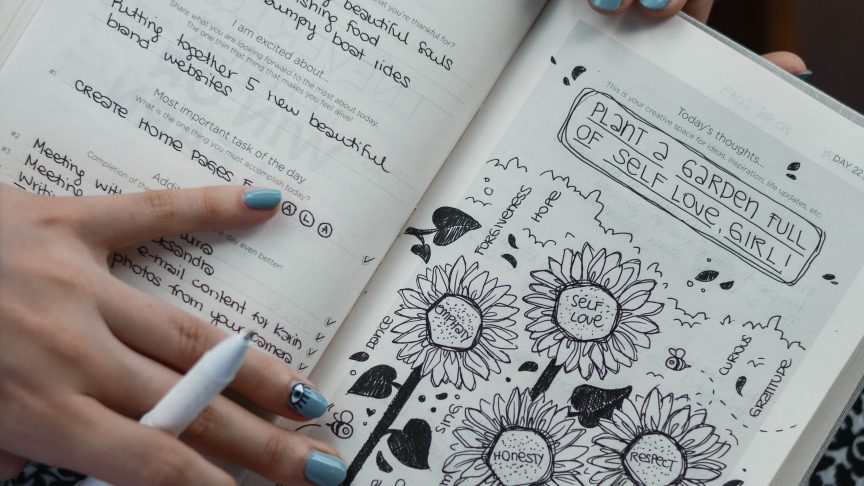 you're thankful for?
beautiful souls
food
bumpy boat rides
I am excited about...
Share what you are looking forward to the most about today.
The one thin that thing that makes you feel alive!
Putting together 5 new beautiful
brand websites
Most important task of the day
What is the one thing you must accomplish today?
#1 CREATE HOME PAGES
ALA
Completion of
#2 Meeting with
#3 Meeting
Writing
day even better!
e-mail content for Karin
photos from your camera
DAY 22
Today's thoughts...
This is your creative space for ideas, inspiration, life updates, etc.
PLANT A GARDEN FULL
OF SELF LOVE, GIRL!
FORGIVENESS
HOPE
SELF
LOVE
DANCE
CURIOUS
GRATITUDE
SING
HONESTY
RESPECT